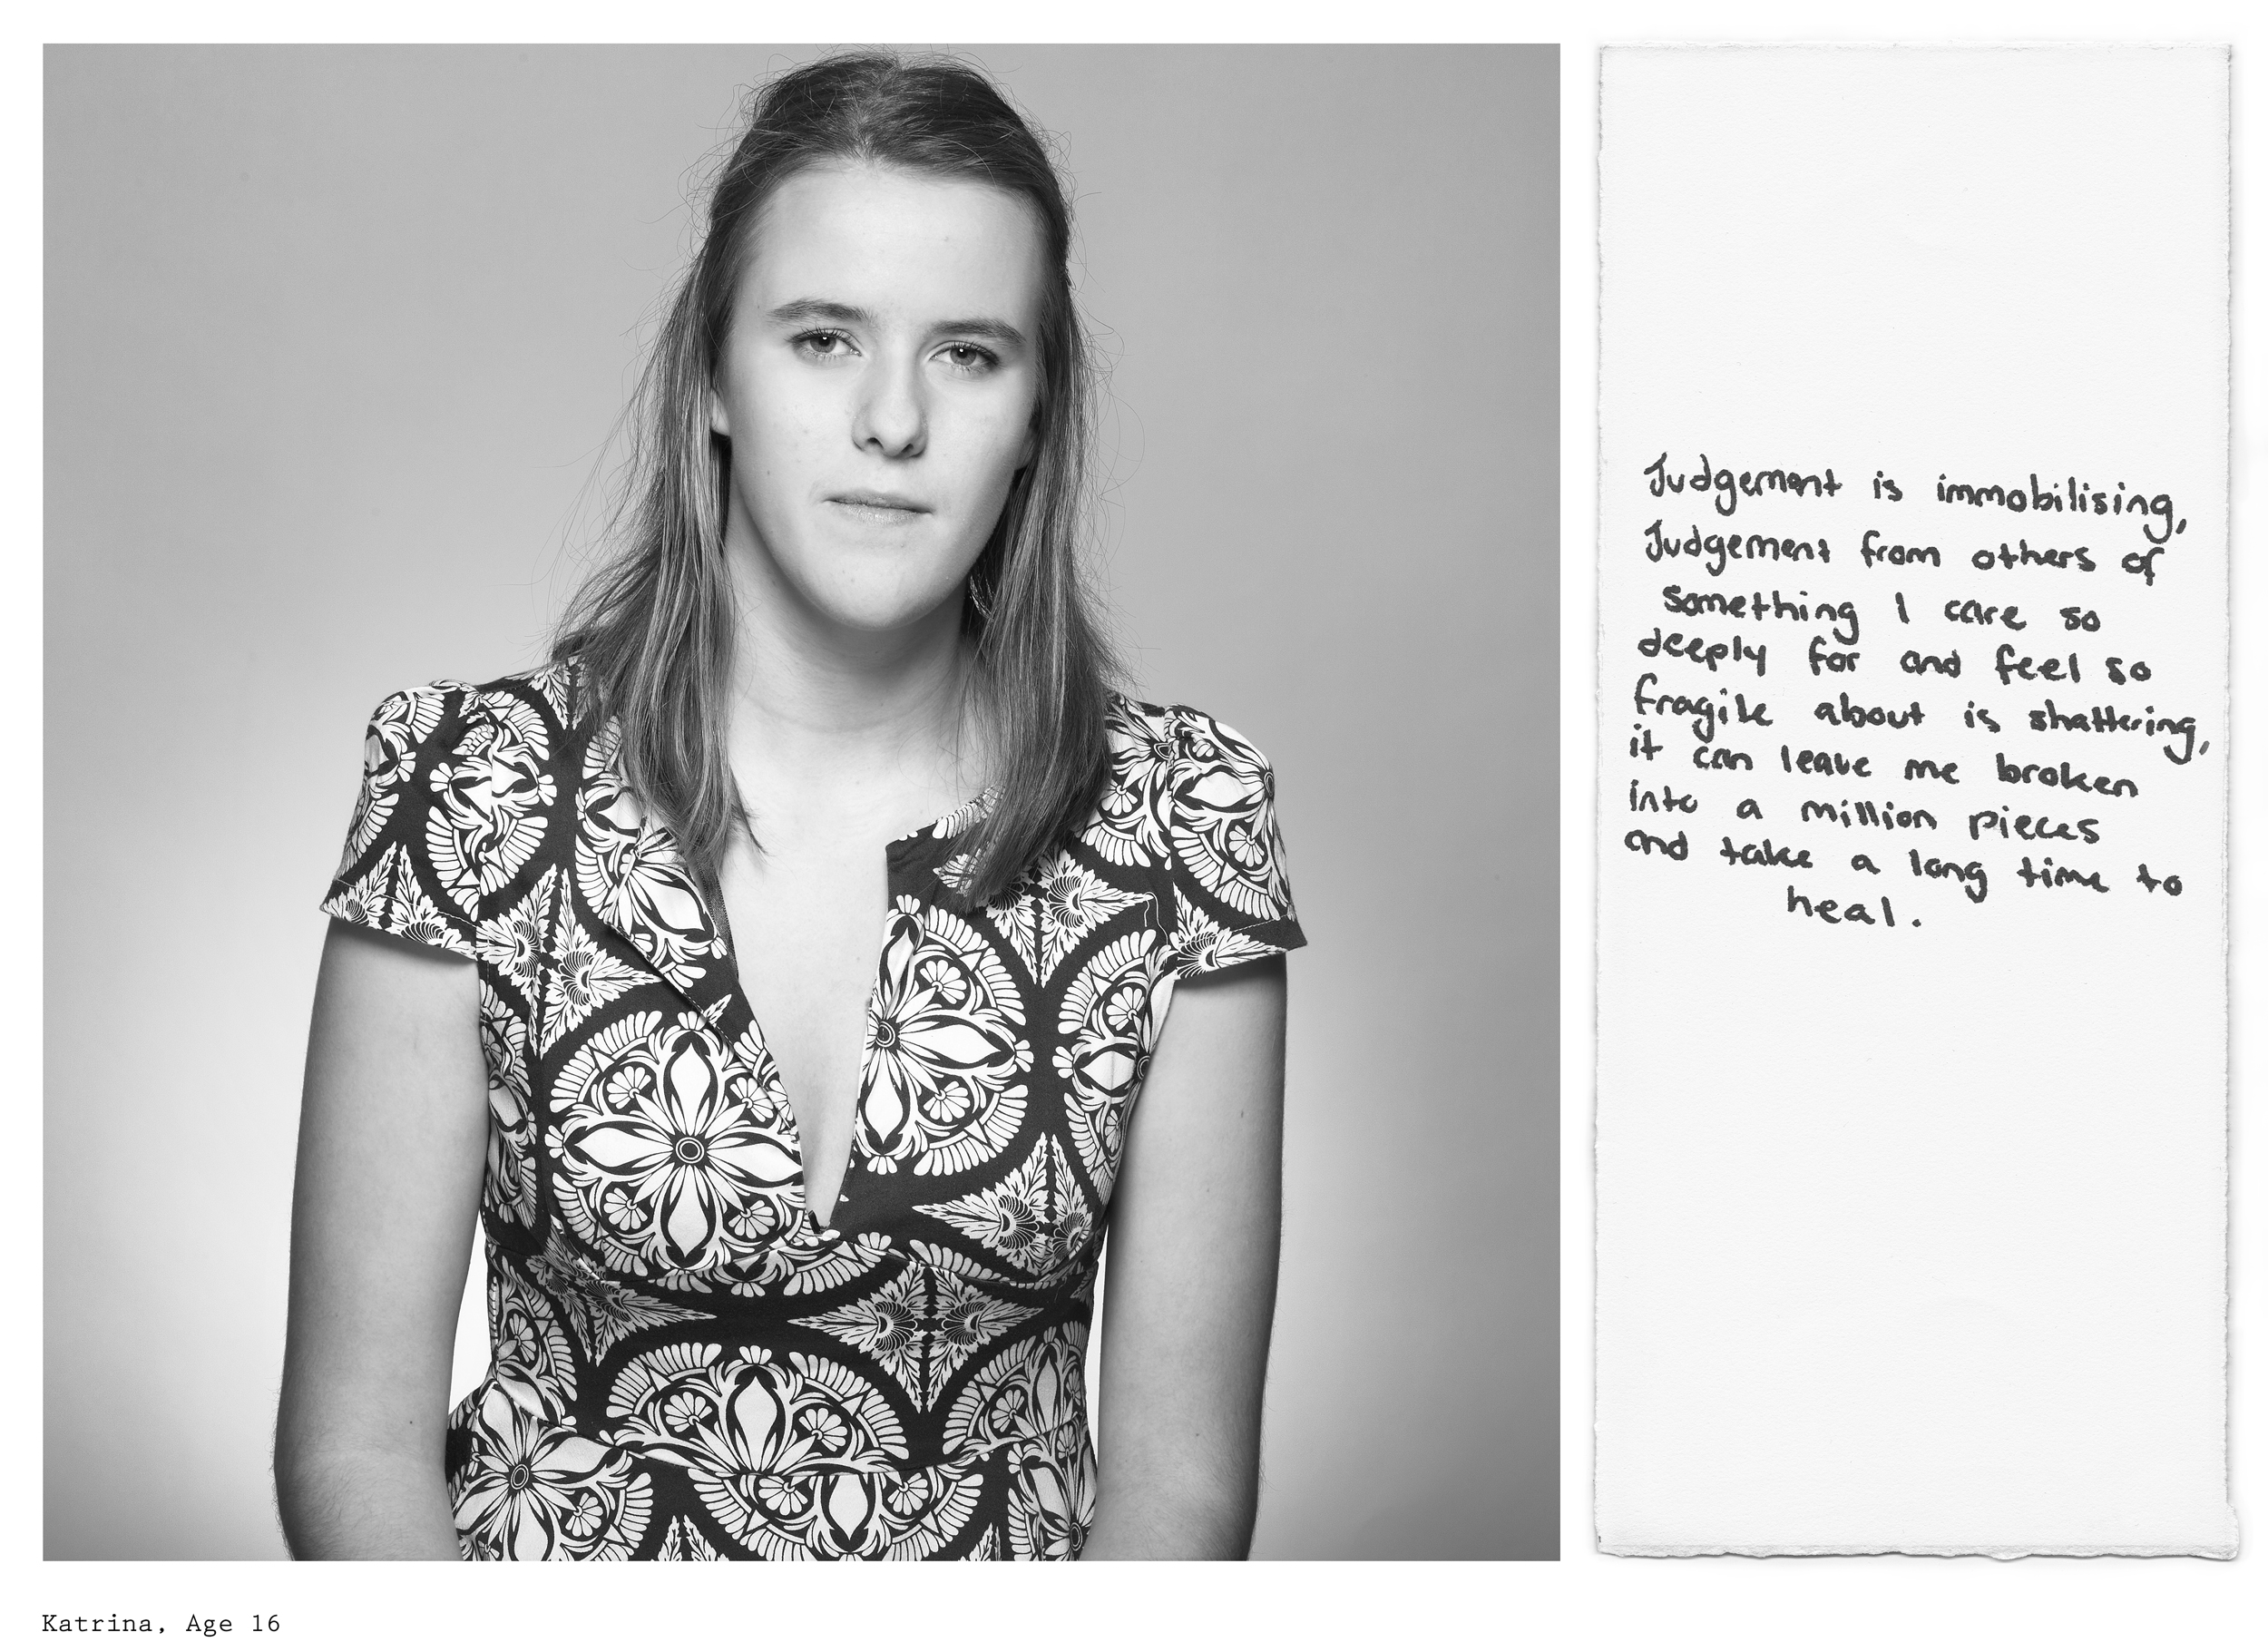 Judgement is immobilising,
Judgement from others of
something I care so
deeply for and feel so
fragile about is shattering,
it can leave me broken
into a million pieces
and take a long time to
heal.
Katrina, Age 16